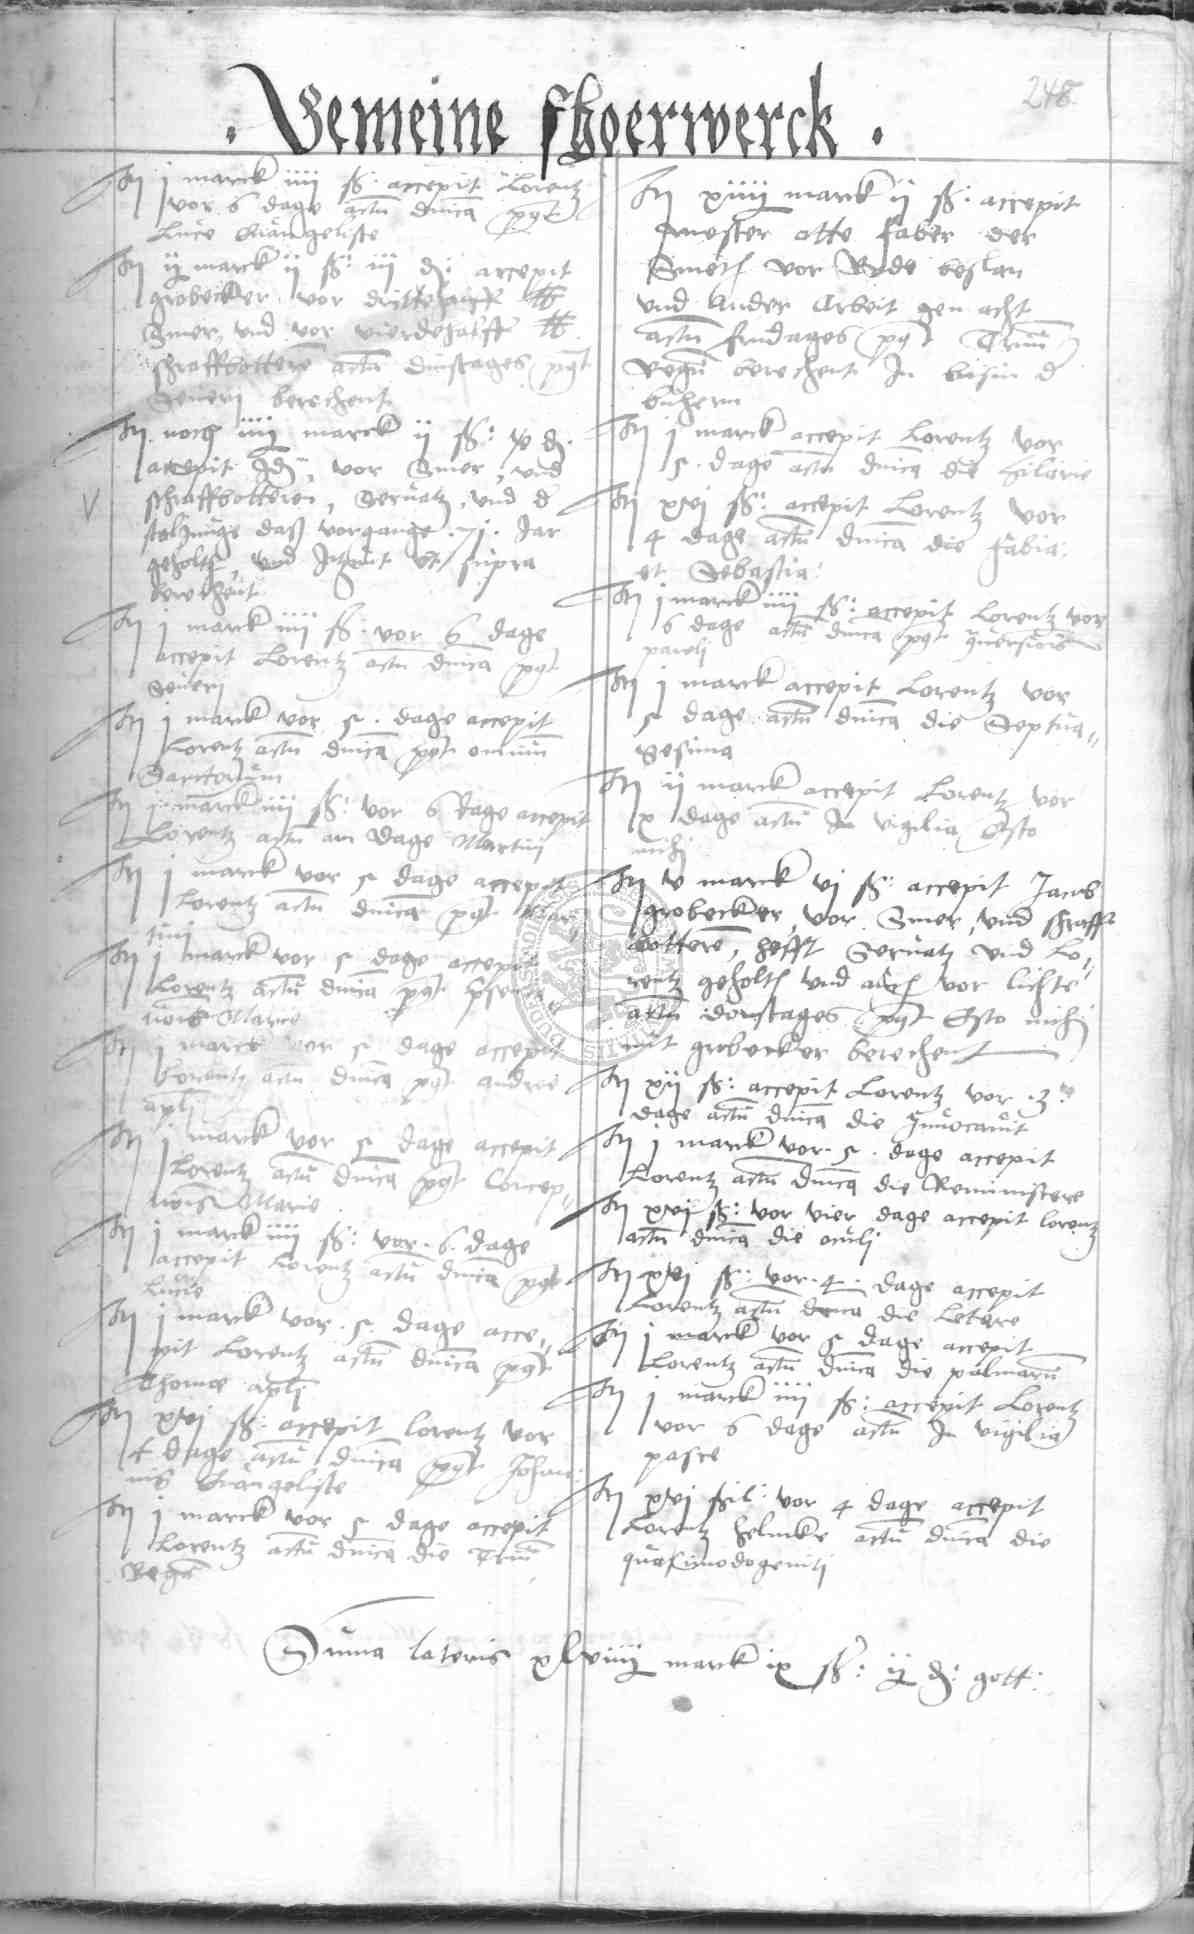 248
. Gemeine fhoerwerck .
Itj j marck iiij ß: accepit Lorentz
vor 6 dage actu dnica pgt
Luce Evangeliste
Itj ij marck ij ß: iij d: accepit
grobecker vor drittehalff ℔
Smer und vor vierdehalff ℔
schraffbottere actu dinstages pgt
Severj berechent
Itj noch iiij marck ij ß: d.
accepit Id, vor Smer, und
schraffbotteren, Servatz und d
staljunge daß vorgangen 71. Jar
geholt, und ut supra
berechent
Itj j marck iiij ß: vor 6 dage
accepit Lorentz actu dnica pgt
Severj
Itj j marck vor 5. dage accepit
Lorentz actu dnica pgt omniu
Sanctorum
Itj j marck iiij ß: vor 6 dage accepit
Lorentz actu am dage Martinj
Itj j marck vor 5 dage accepit
Lorentz actu dnica pgt Mar
tinj
Itj j marck vor 5 dage accepit
Lorentz actu dnica pgt pse
nois Marie
Itj j marck vor 5 dage accepit
Lorentz actu dnica pgt Andree
aplj
Itj j marck vor 5 dage accepit
Lorentz actu dnica pgt Concep„
nois Marie
Itj j marck iiij ß: vor . 6. dage
accepit Lorentz actu dnica pgt
Lucie
Itj j marck vor . 5. dage acce„
pit Lorentz actu dnica pgt
Thome aplj
Itj xvj ß: accepit lorentz vor
4 dage actu dnica pgt Johan:
nis Evangeliste
Itj j marck vor 5 dage accepit
Lorentz actu dnica die Triu
Regu
Itj xiiij marck ij ß: accepit
mester otte faber der
Smeth vor Rede beslan
und ander Arbeit gen acht
actu fridages pgt Trium
Regu berechent In bisin d
buhern
Itj j marck accepit Lorentz vor
5. dage actu dnica die hilarie
Itj xvj ß: accepit Lorentz vor
4 dage actu dnica die fabia:
et Sebastia:
Itj j marck iiij ß: accepit Lorentz vor
6 dage actu dnica pgt 9versiois
paulj
Itj j marck accepit Lorentz vor
5 dage actu dnica die Septua„
gesima
Itj ij marck accepit Lorentz vor
x dage actu In vigilia Esto
michj
Itj v marck vj ß: accepit Jacob
grobecker, vor Smer, und schraff
bottere, hefft Servatz und Lo„
rentz geholt und auch vor lichte
actu donstages pgt Esto michj
mit grobecker berechent
Itj xij ß: accepit Lorentz vor .3.
dage actu dnica die Invocavit
Itj j marck vor . 5 . dage accepit
Lorentz actu dnica die Reminiscere
Itj xvj ß: vor vier dage accepit lorentz
actu dnica die oculj
Itj xvj ß: vor . 4 . dage accepit
Lorentz actu dnica die Letare
Itj j marck vor 5 dage accepit
Lorentz actu dnica die palmaru
Itj j marck iiij ß: accepit Lorentz
vor 6 dage actu In vigilia
pasce
Itj xvj ßil: vor 4 dage accepit
Lorentz helmke actu dnica die
quasimodogenitj
Suma lateris xlviiij marck ix ß: ij d: gott: